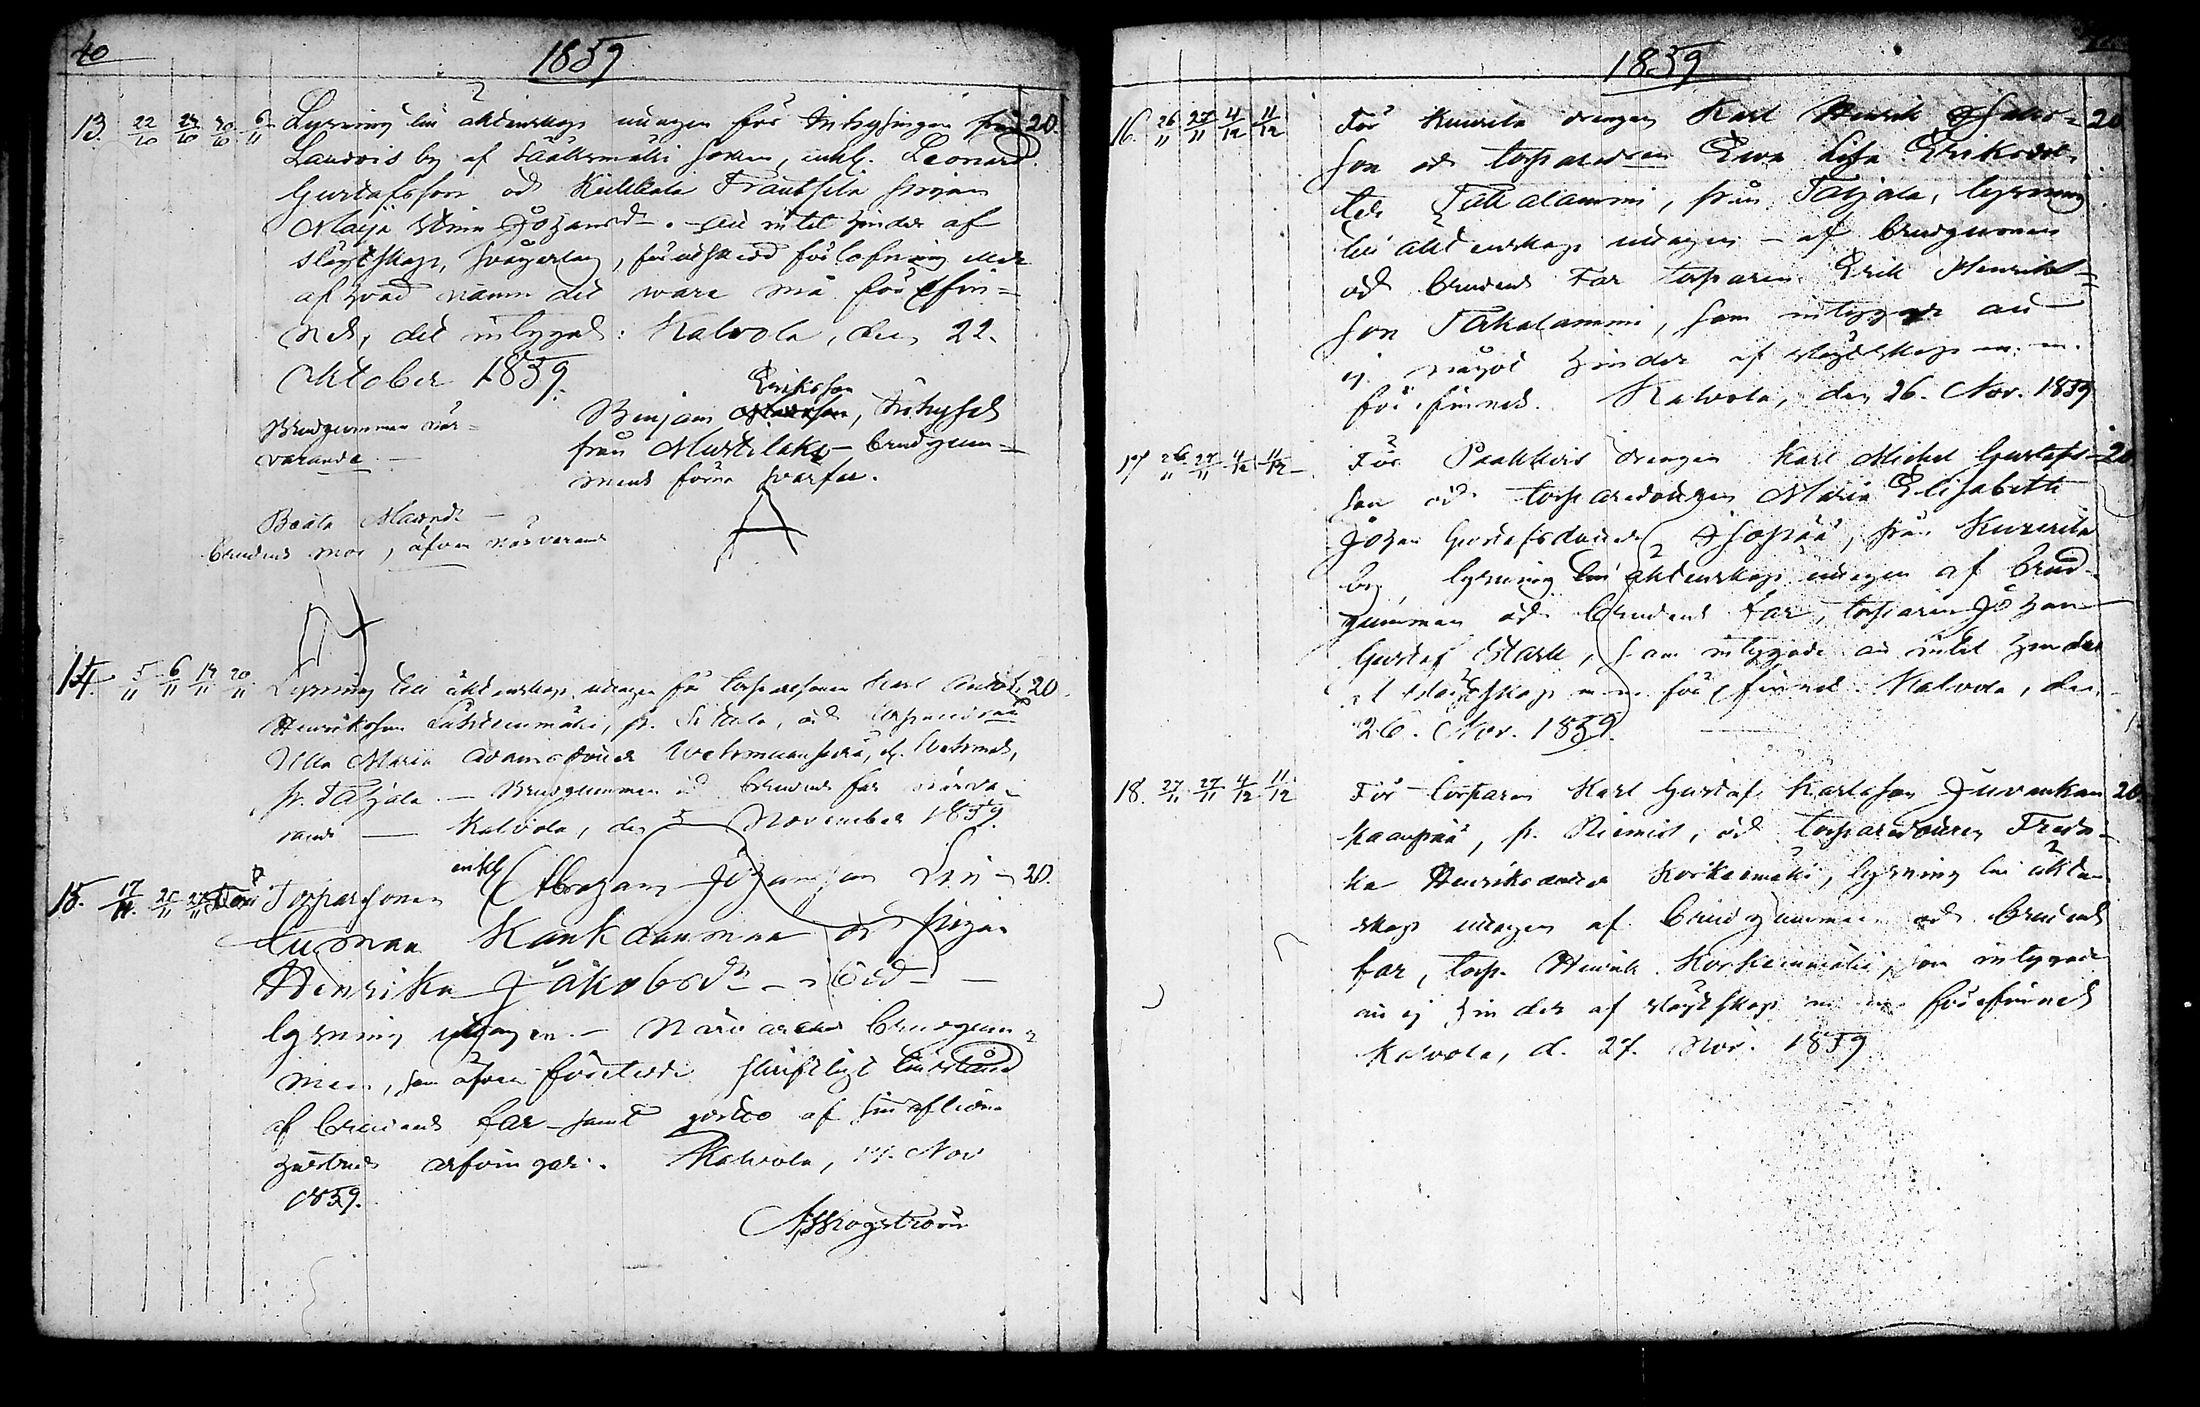 40
1859
13. 22/10 23/10 30/10 6/11 Lysning till äktenskap uttagen för Inhysingen från 20.
Laurois by af Sääksmäki socken, enkl. Leonard
Gustafsson och Kutkala Frantsila pigan
Maija Stina Johansdr. Att intet hinder af
slägtskap, svågerlag, förutskedd förlofning eller
af hvad namn det vara må förefin=
nes, det intygas: Kalvola, den 22.
Oktober 1859.
Brudgummen när=
varande.
Benjam Eriksson, Inhyses
från Mustila – brudgum=
mens förre svärfar.
Beata Matsdr
brudens mor, äfven närvarande
14. 5/11 6/11 13/11 20/11 Lysning till äktenskap uttagen för torparesonen Karl Anders 20.
Henriksson Lähteenmäki, fr. Sittala, och torparedr
Ulla Maria Adamsdotter
fr. Taljala. – Brudgummen och brudens far närva=
rande – Kalvola, den 5 November 1859.
15. 17/11 20/11 27/11 Torparesonen enkl. Abraham Johansson 20.
Kankaanmaa och pigan
Henrika Jakobsdr
lysning uttagen. – Närvarande brudgum=
men, som äfven företedde skriftligt tillstånd
af brudens far samt af sin aflidna
hustrus arfvingar. Kalvola, 17. Nov
1859.
A. Skogström
1859
16. 26/11 27/11 4/12 11/12 För Kuurila drengen Karl Henrik Jakobs= 20
son och torparedren Eva Lisa Eriksdot=
ter Takalammi, från Taljala, lysning
till äktenskap uttagen – af brudgummen
och brudens far torparen Erik Henriks=
son Takalammi, som intygade att
ej något hinder af slägtskap m. m.
förefinnes. Kalvola, den 26. Nov. 1859
17 26/11 27/11 4/12 11/12 För Paakkois drengen Karl Michel Gustafs= 20
son och torparedottren Maria Elisabeth
Johan Gustafsdotter, från Kuurila
by, lysning till äktenskap uttagen af brud=
gummen och brudens far, torparen Johan
Gustaf, som intygade att intet hinder
af slägtskap m. m. förefinnes. Kalvola, den
26. Nov. 1859.
18. 27/11 27/11 4/12 11/12 För torparen Karl Gustaf Karlsson Juvankan 20
kaanpää, fr. Niemist, och torparedottren Fredri=
ka Henriksdotter Korkeemäki, lysning till äkten=
skap uttagen af brudgummen och brudens
far, torp. Henrik Korkeemäki, som intygade
att ej hinder af slägtskap m. m. förefinnes
Kalvola, d. 27. Nov. 1859